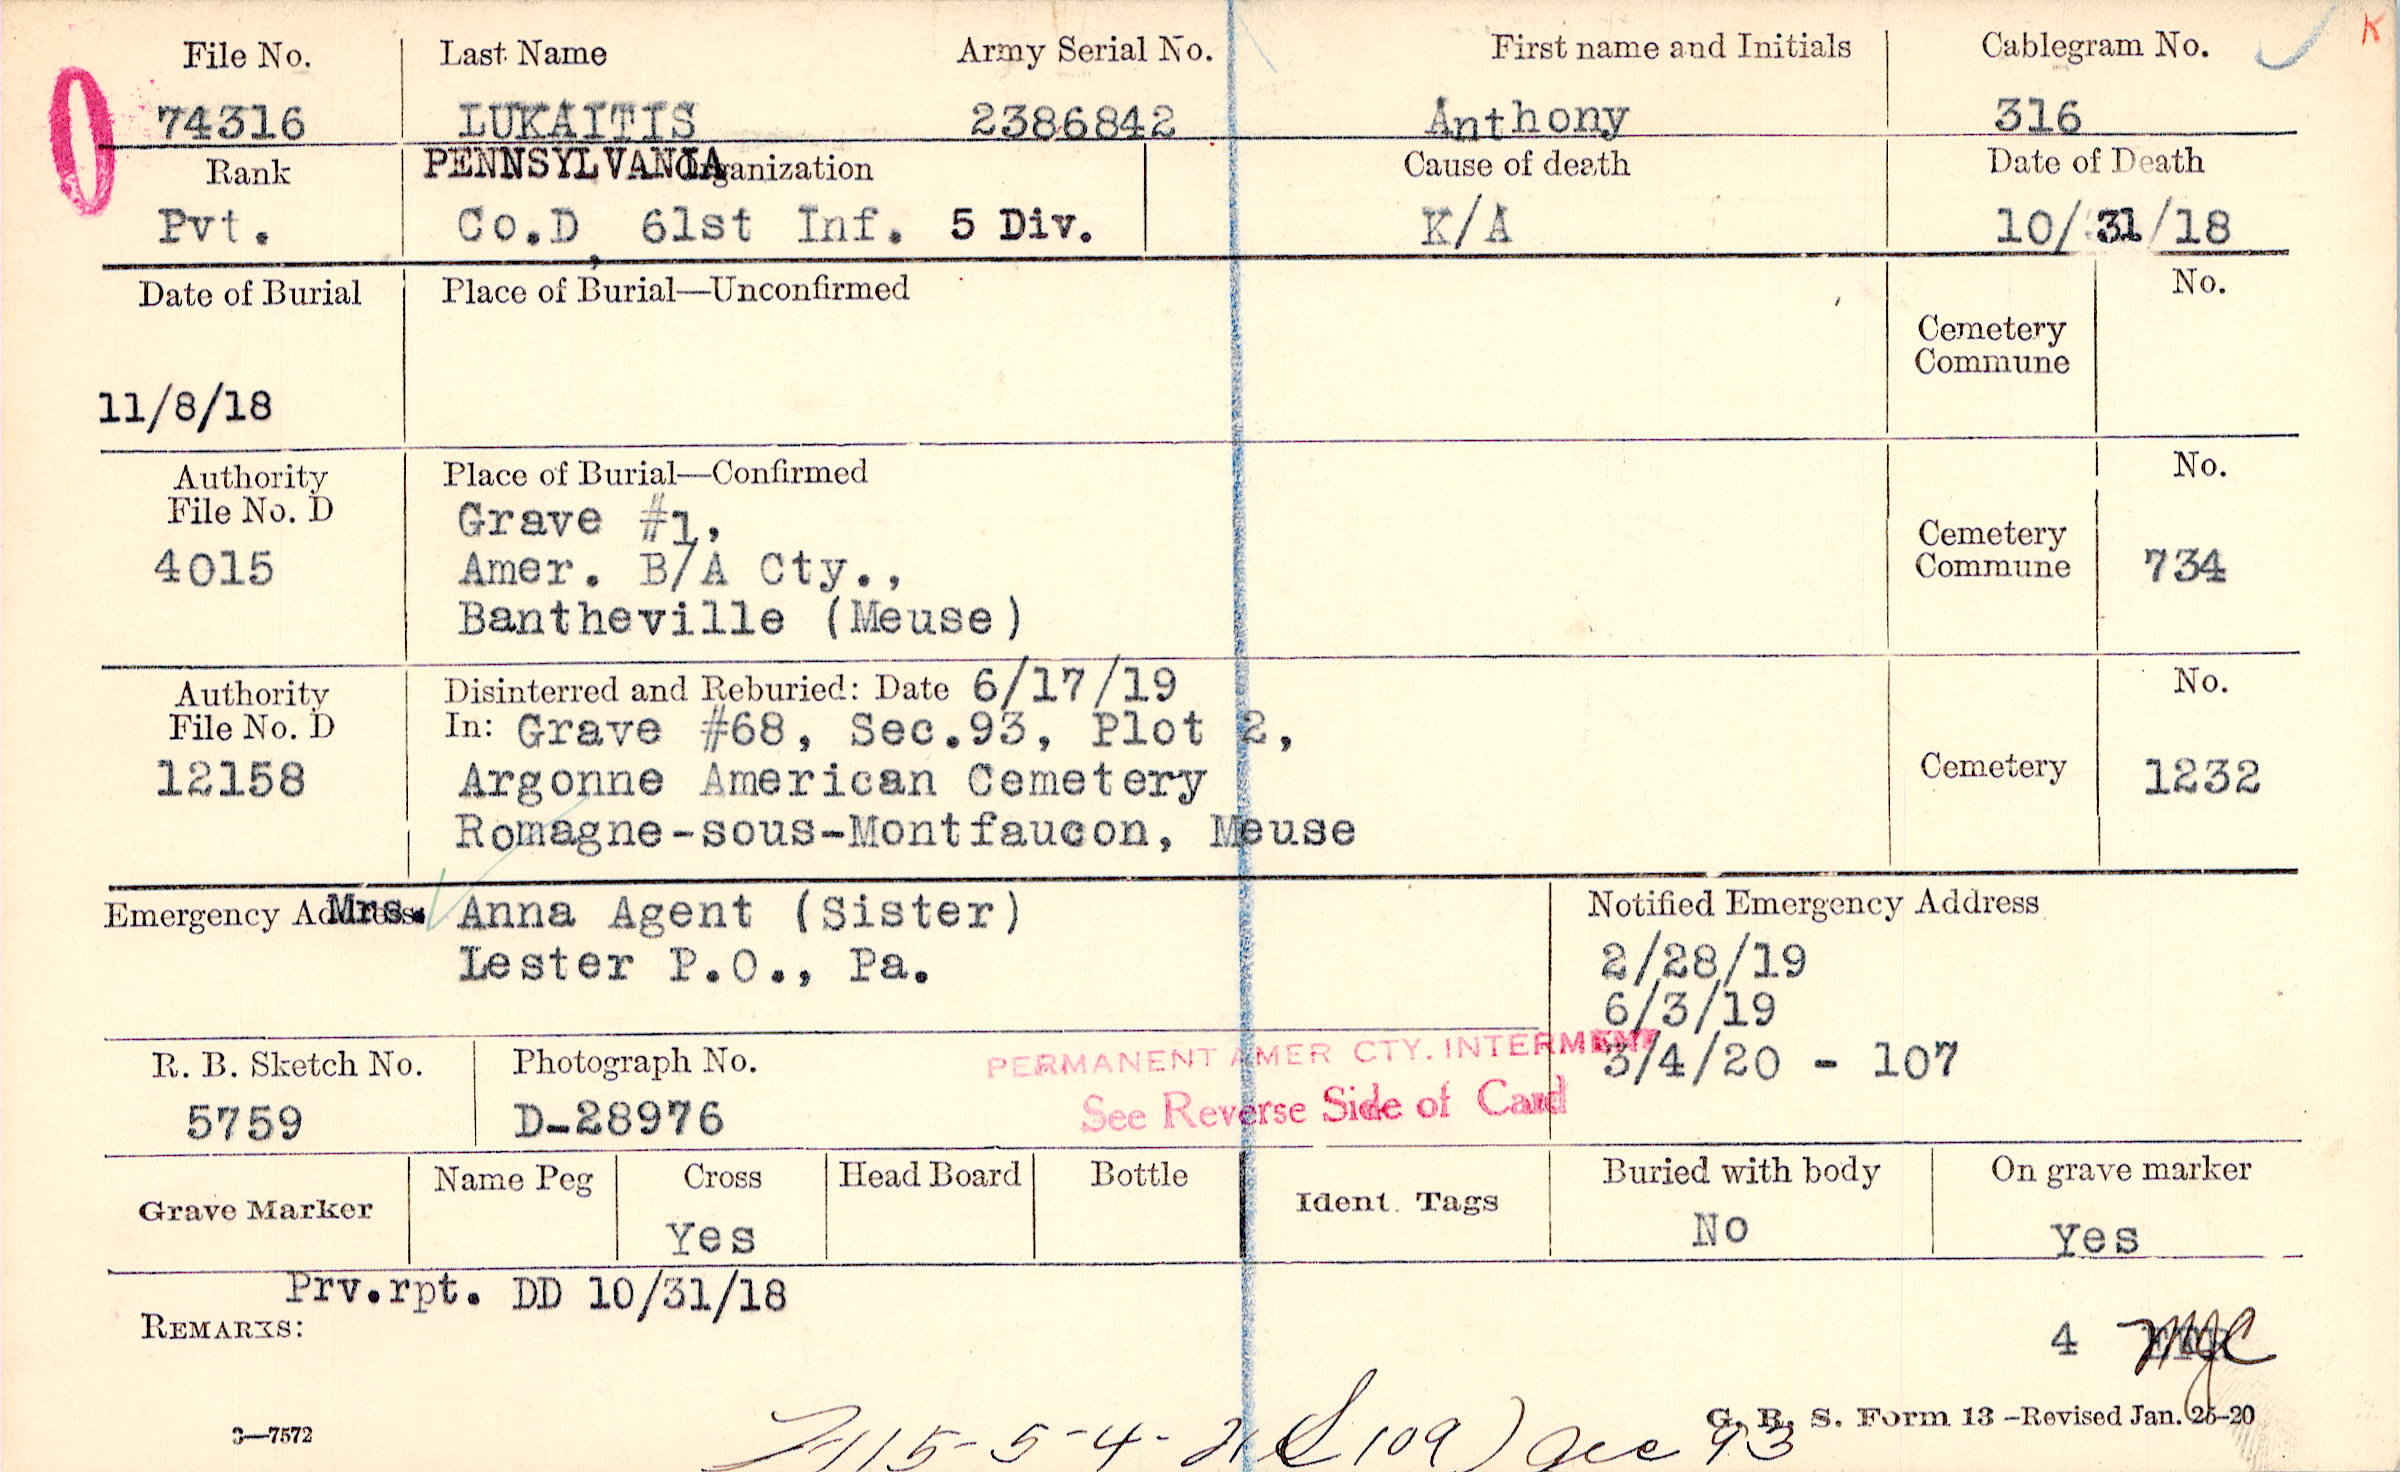 File No. Last Name Army Serial No. First name and Initials Cablegram No. K
0
74316 LUKAITIS 2386842 Anthony 316
Rank PENNSYLVANIA Organization Cause of death Date of Death
Pvt. Co.D, 61st Inf. 5 Div. K/A 10/31/18
Date of Burial Place of Burial—Unconfirmed No.
Cemetery
Commune
11/8/18
Authority Place of Burial—Confirmed No.
File No. D Grave #1,
4015 Amer. B/A Cty., Cemetery
Commune 734
Bantheville (Meuse)
Authority Disinterred and Reburied: Date 6/17/19 No.
File No. D In: Grave #68, Sec.93, Plot 2,
12158 Argonne American Cemetery Cemetery 1232
Romagne-sous-Montfaucon, Meuse
Emergency Address Mrs. Anna Agent (Sister) Notified Emergency Address
Lester P.O., Pa. 2/28/19
6/3/19
R. B. Sketch No. Photograph No. PERMANENT AMER CTY. INTERMENT 3/4/20 - 107
5759 D-28976 See Reverse Side of Card
Grave Marker Name Peg Cross Head Board Bottle Ident. Tags Buried with body On grave marker
Yes No Yes
Prv.rpt. DD 10/31/18
REMARKS: 4
3—7572 G. R. S. Form 13 -Revised Jan. 26-20
5-5-4- (109) Gee 93